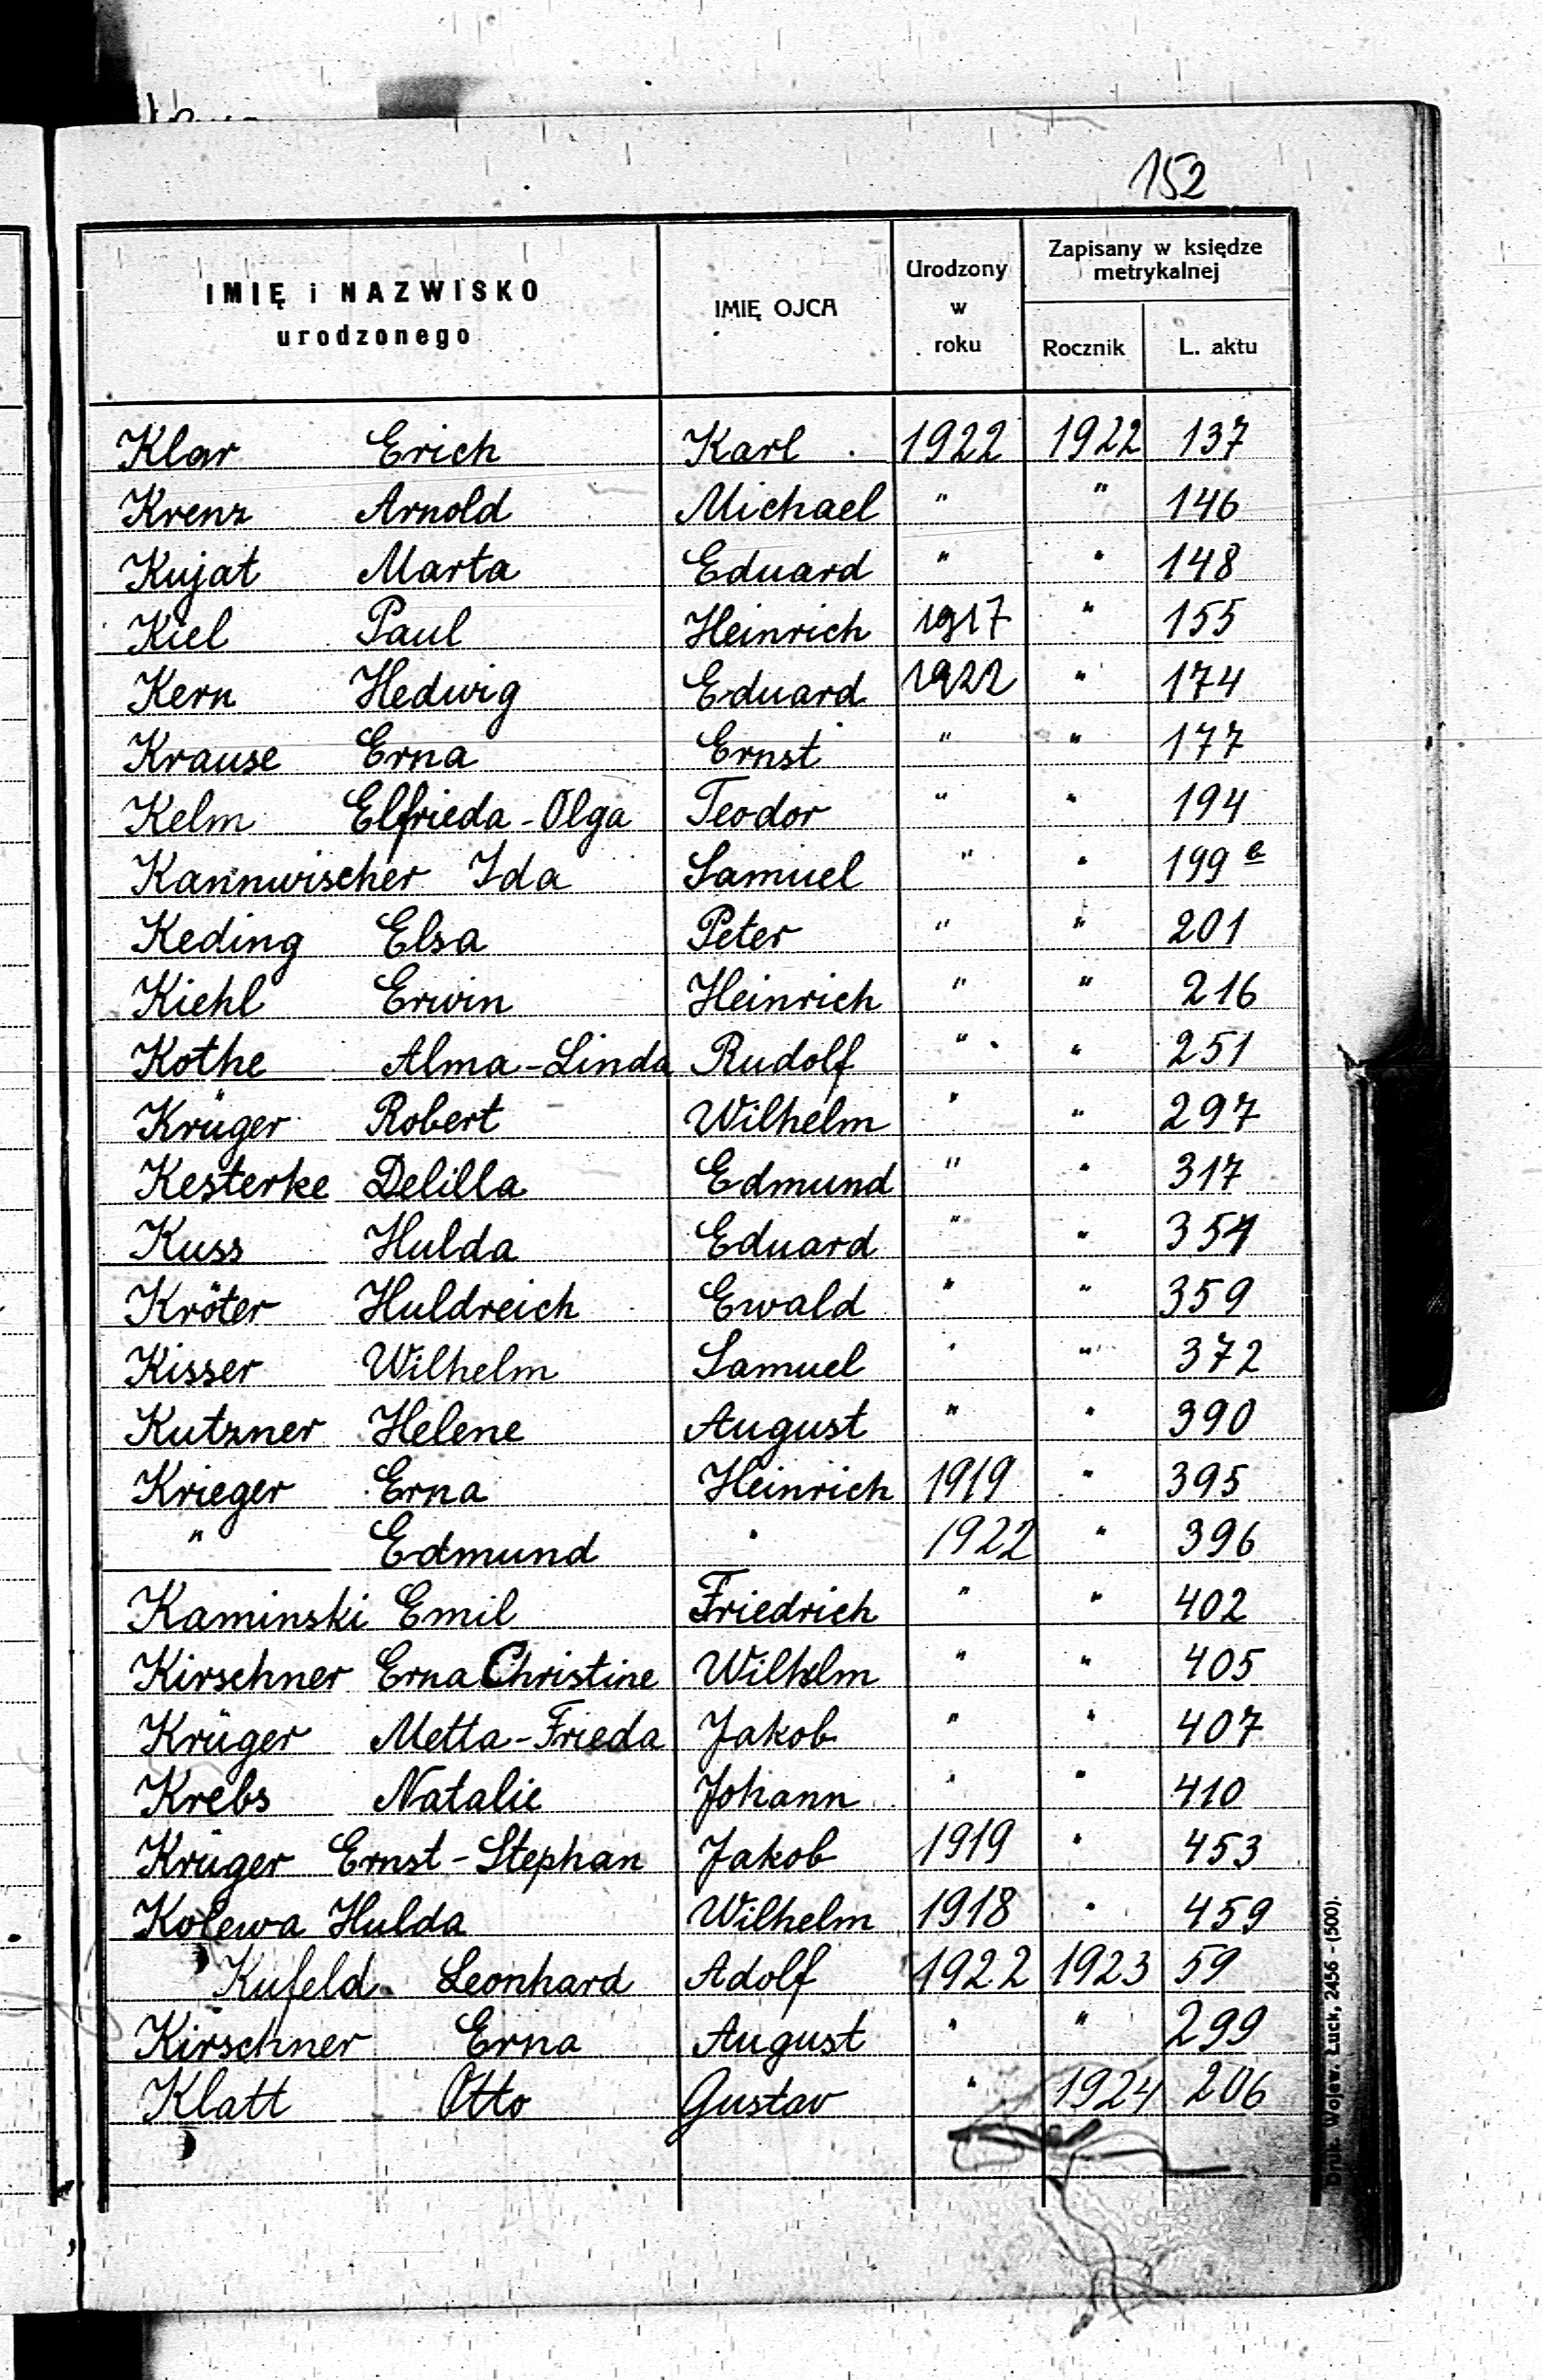 152
IMIĘ i NAZWISKO urodzonego IMIĘ OJCA Urodzony w roku Zapisany w księdze metrykalnej Rocznik L. aktu
Klar Erich Karl 1922 1922 137
Krenz Arnold Michael " " 146
Kujat Marta Eduard " " 148
Kiel Paul Heinrich 1917 " 155
Kern Hedwig Eduard 1922 " 174
Krause Erna Ernst " " 177
Kelm Elfrieda-Olga Teodor " " 194
Kannwischer Ida Samuel " " 199
Keding Elsa Peter " " 201
Kiehl Erwin Heinrich " " 216
Kothe Alma-Linda Rudolf " " 251
Krüger Robert Wilhelm " " 297
Kesterke Delilla Edmund " " 317
Kuss Hulda Eduard " " 354
Kröter Huldreich Ewald " " 359
Kisser Wilhelm Samuel " " 372
Kutzner Helene August " " 390
Krieger Erna Heinrich 1919 " 395
" Edmund " 1922 " 396
Kaminski Emil Friedrich " " 402
Kirschner Erna Christine Wilhelm " " 405
Krüger Metta-Frieda Jakob " " 407
Krebs Natalie Johann " " 410
Krüger Ernst-Stephan Jakob 1919 " 453
Kolewa Hulda Wilhelm 1918 " 459
Kufeld Leonhard Adolf 1922 1923 59
Kirschner Erna August " " 299
Klatt Otto Gustav " 1924 206
Druk. Wojew. Łuck, 2456 - (500).